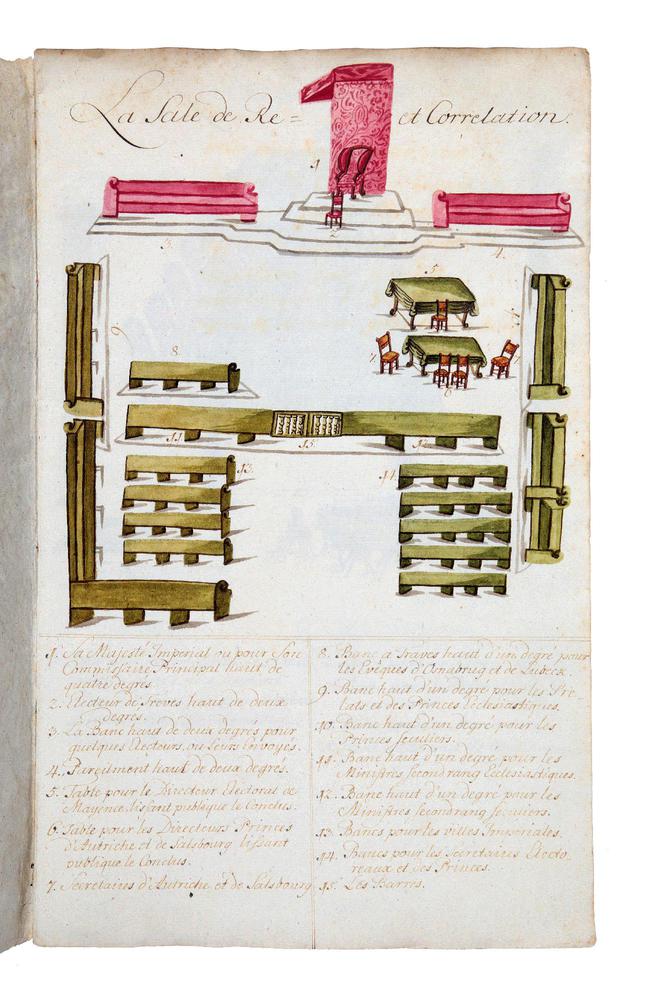 La Sale de Re= et Correlation.
1
2
3.
4.
5.
7.
6
8.
9
11.
15.
12
13.
14
1. Sa Majesté Imperial ou pour Son
Commissaire Principal haut de
quatre degrés.
2. Electeur de Treves haut de deux
degrés.
3. La Banc haut de deux degrés pour
quelques Electeurs, ou leurs Envoyés.
4. Pareilment haut de deux degrés.
5. Table pour le Directeur Electoral de
Mayence lisant publique le Conclus.
6. Table pour les Directeurs Princes
d'Autriche et de Salsbourg lissant
publique le Conclus.
7. Secretaires d'Autriche et de Salsbourg.
8. Banc a Traves haut d'un degré pour
les Evêques d'Osnabrug et de Lubeck.
9. Banc haut d'un degré pour les Pre-
lats et des Princes Ecclesiastiques.
10. Banc haut d'un degré pour les
Princes seculiers.
11. Banc haut d'un degré pour les
Ministres secondrang Ecclesiastiques.
12. Banc haut d'un degré pour les
Ministres secondrang secuiers.
13. Bancs pour les villes Imperiales.
14. Bancs pour les Secretaires Electo-
reaux et des Princes.
15. Les Barres.